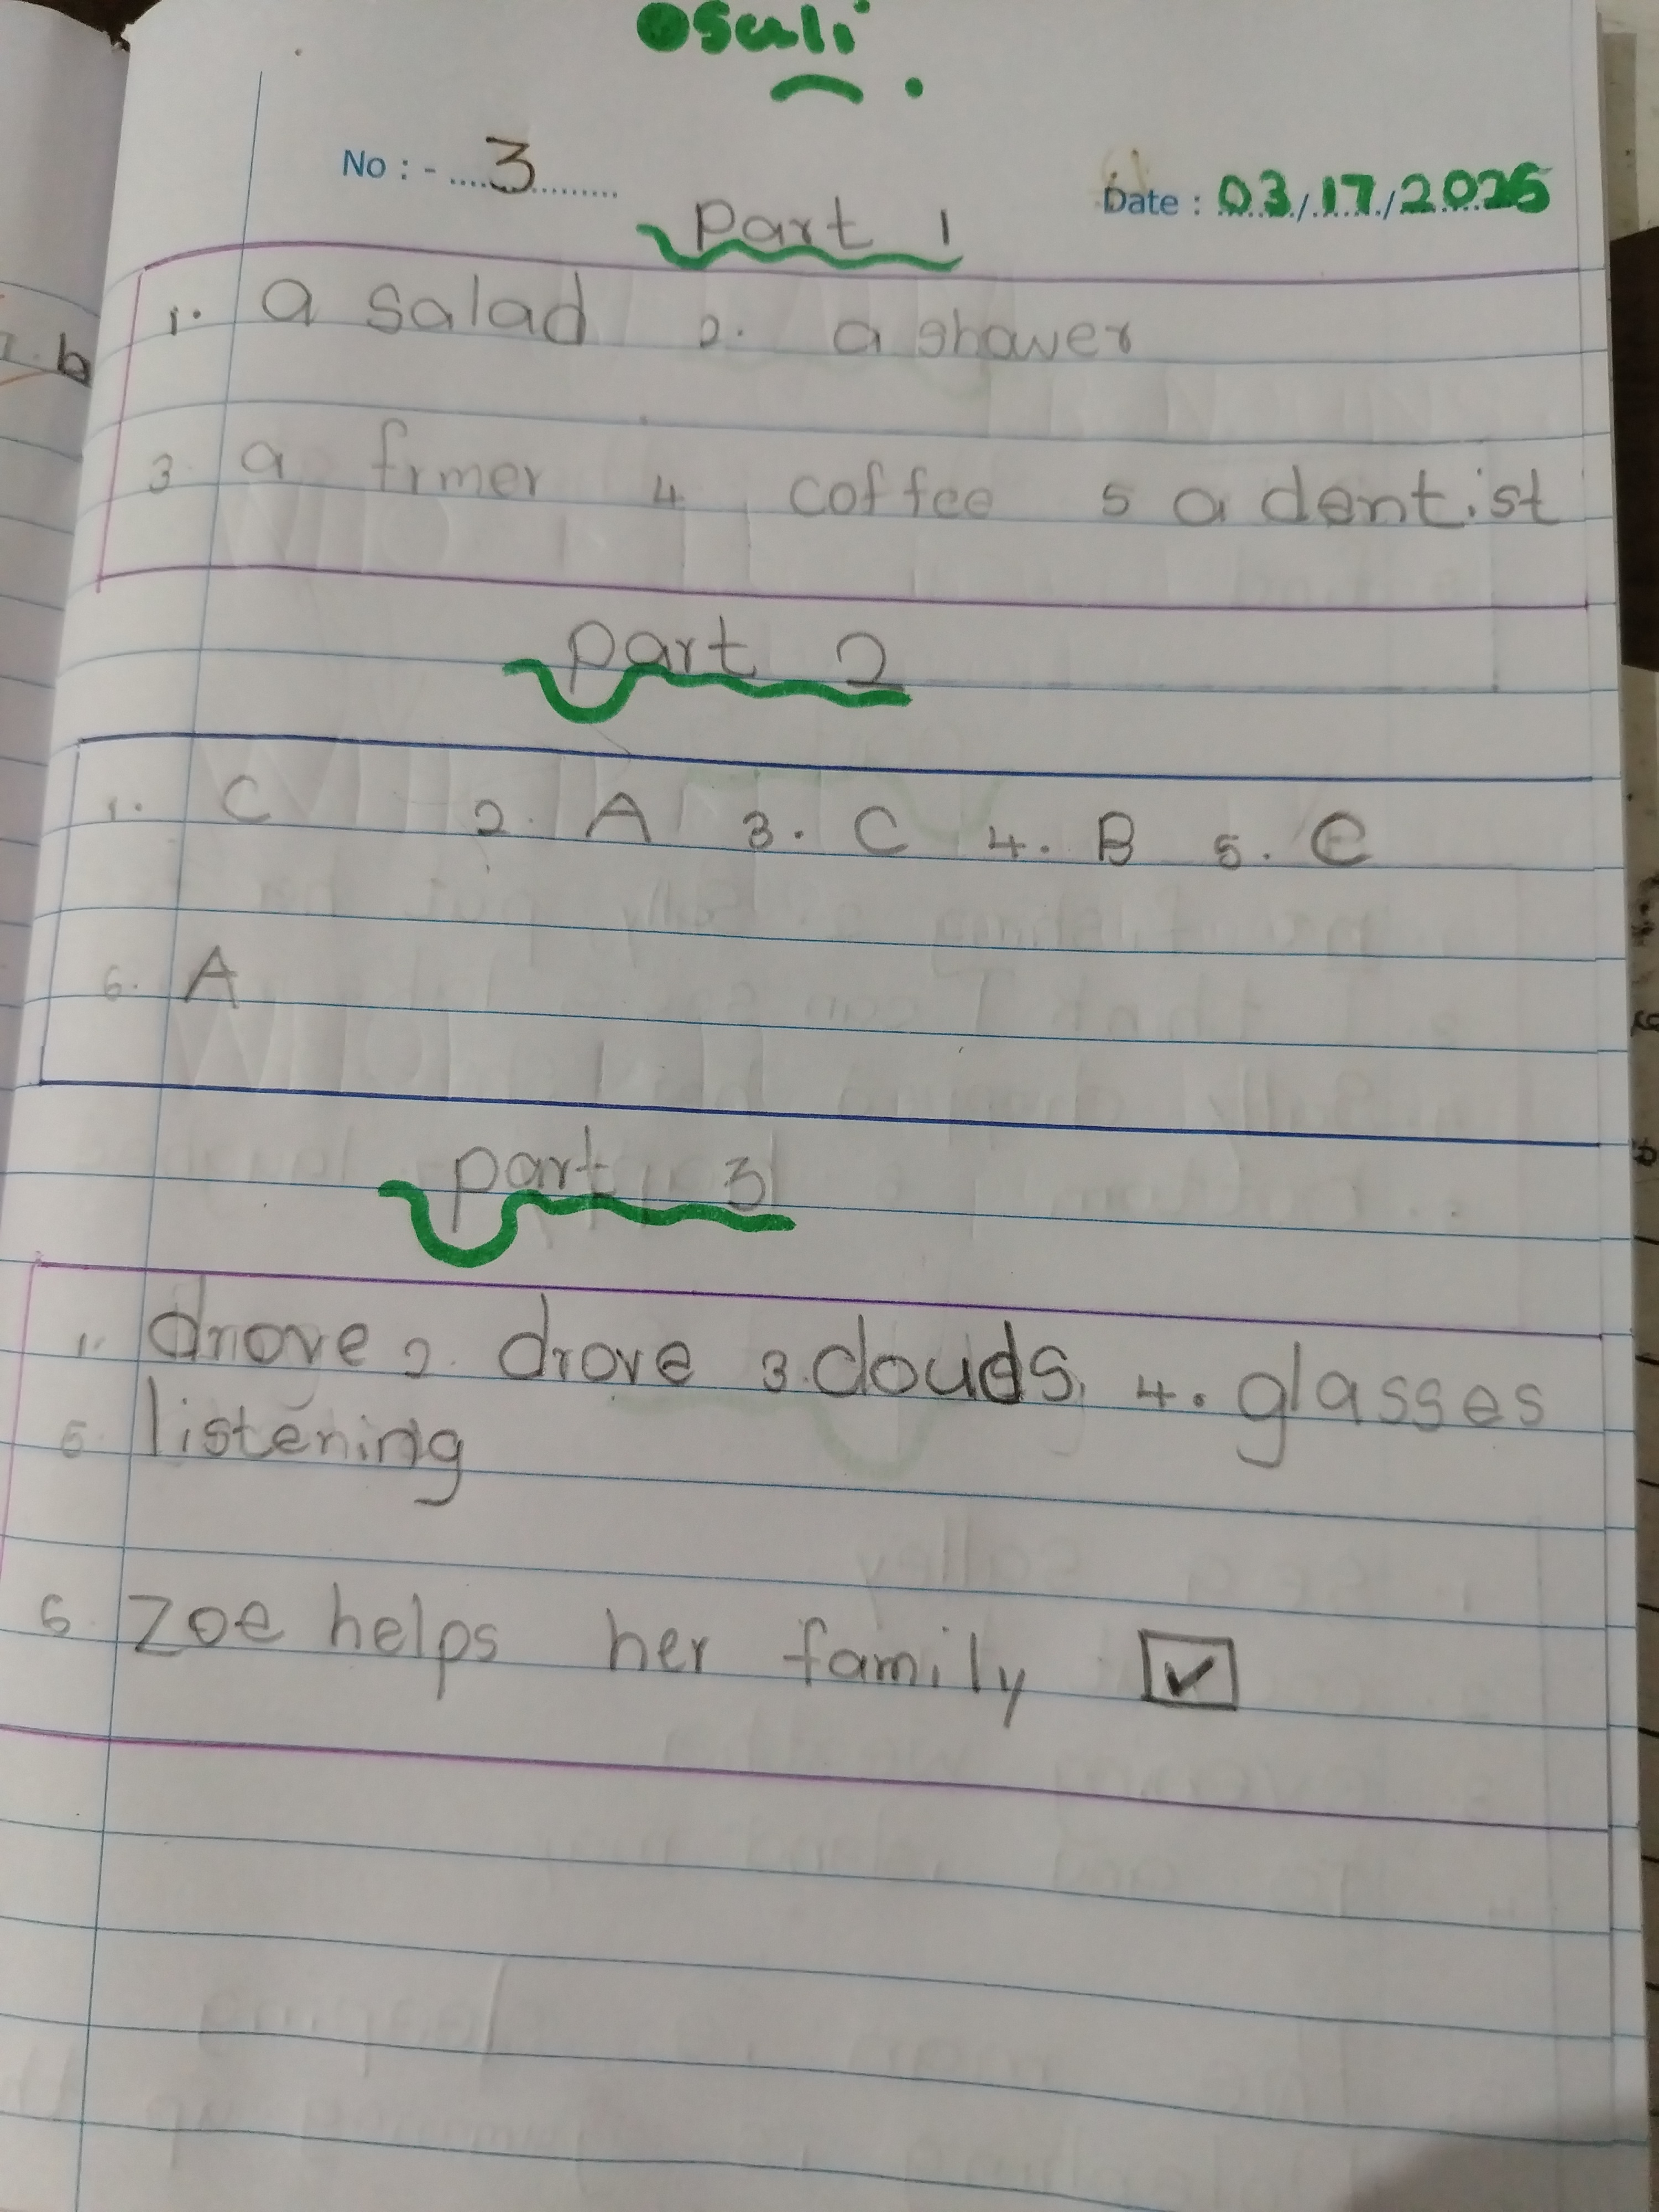 Osuli
No : - 3
Date : 03/17/2025
Part 1
1. a salad 2. a shower
3 a frmer 4 coffee 5 a dentist
part 2
1. C 2. A 3. C 4. B 5. C
6. A
part 3
1. drove 2. drove 3. clouds, 4. glasses
5. listening
6 Zoe helps her family ✓
b